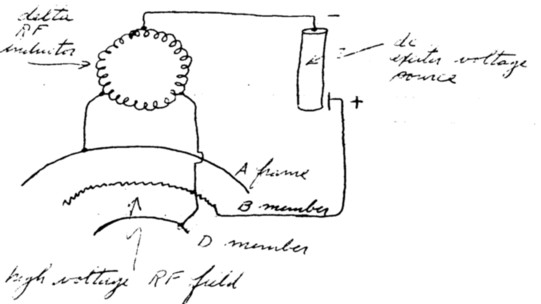 delta
RF
inductor
−
dc
exciter voltage
source
+
A frame
B member
D member
high voltage RF field